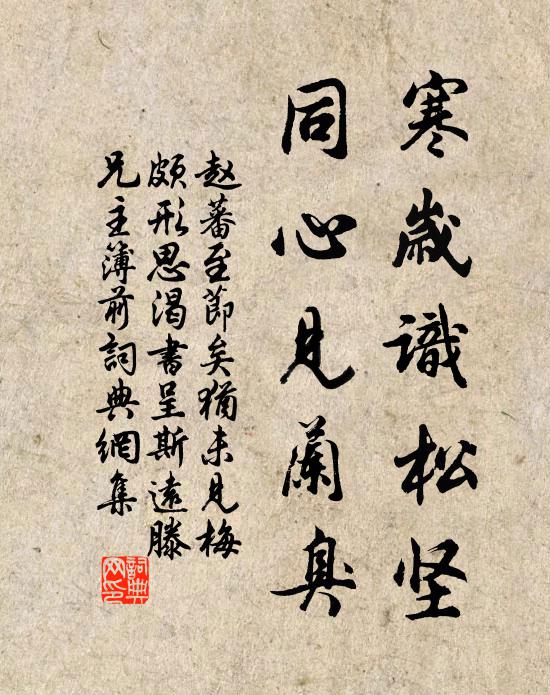 寒歲識松坚
同心見蘭臭
赵蕃至節矣猶未見梅
頗形思渴書呈斯遠滕
兄主簿前詞典網集
詞典网印